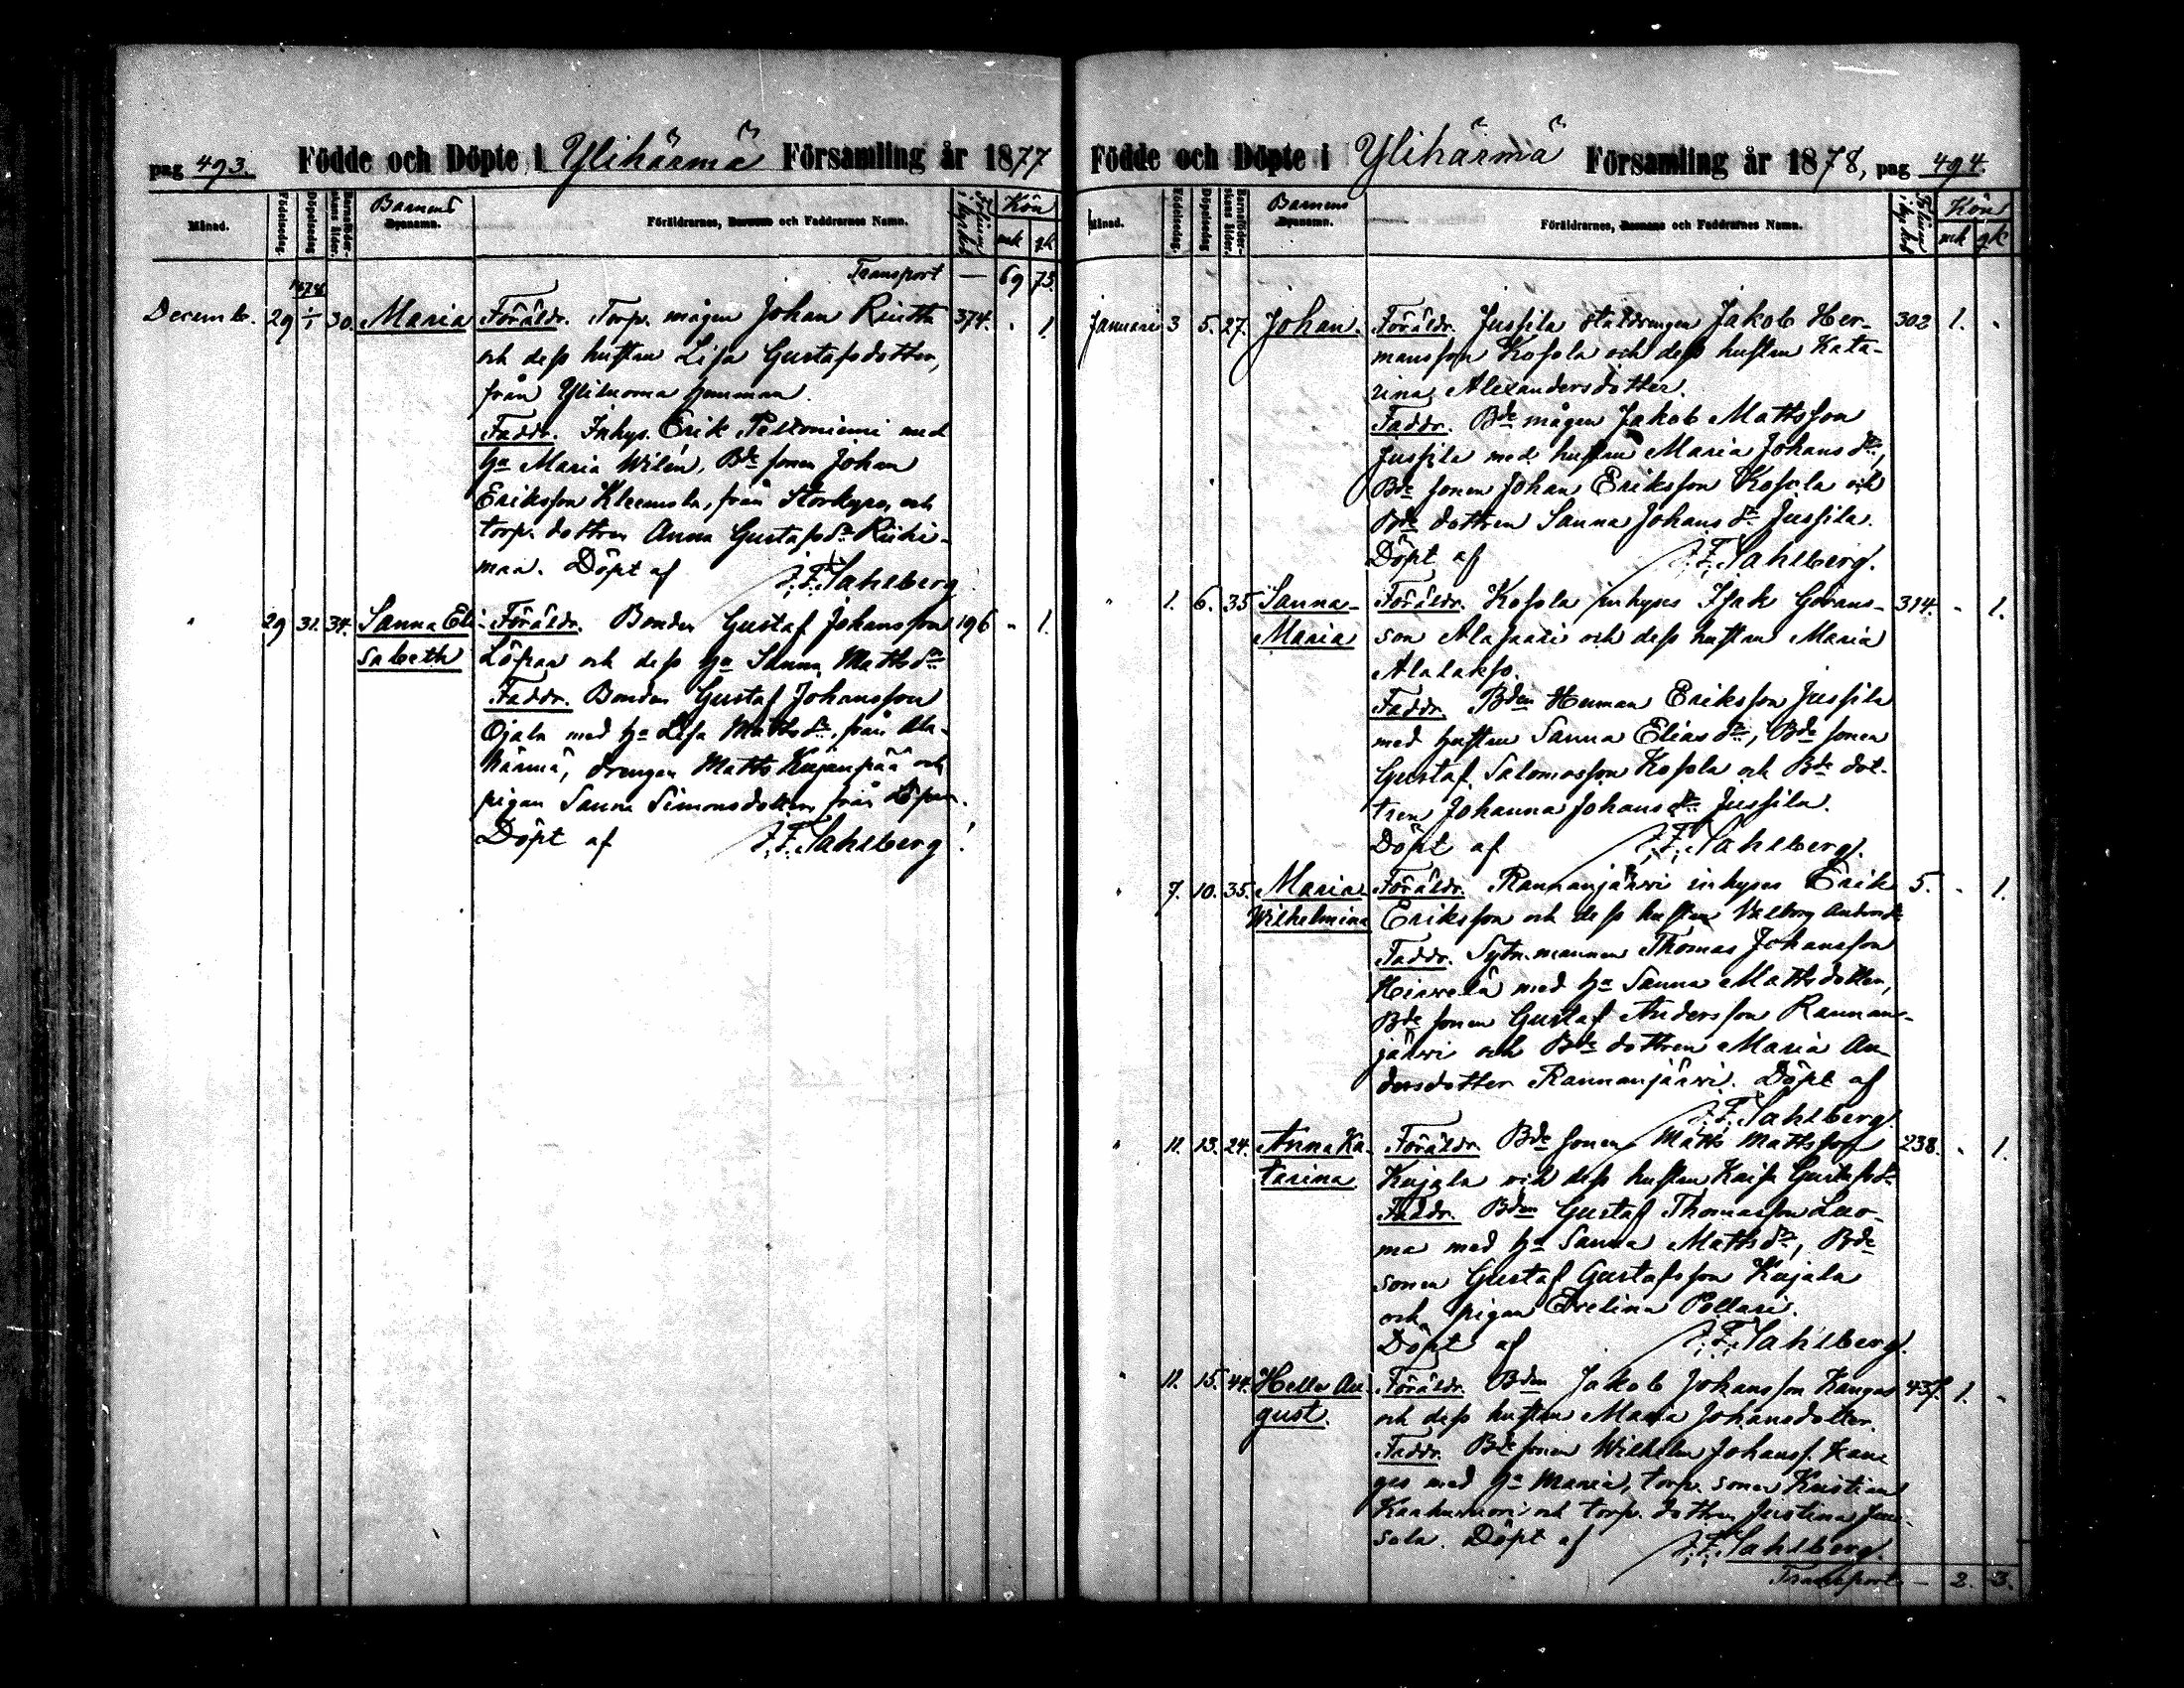 pag 493. Födde och Döpte i Ylihärmä Församling år 1877
Månad. Födelsedag. Döpelsedag. Barnaföderskans ålder. Barnens Dopnamn. Föräldrarnes, Barnens och Faddrarnes Namn. Kön
mk qk
Transport — 69 73.
1878
Decemb. 29 1/1 30. Maria Föräldr. Torp. mågen Johan 374. " 1.
och dess hustru Lisa Gustafsdotter,
från Ylikoma hemman.
Faddr. Inhys. Erik Peltoniemi med
hu Maria Wilén, Bde sonen Johan
Eriksson från Storkyro, och
torp. dottren Anna Gustafsdr Riihi-
maa. Döpt af J. F. Sahlberg
" 29 31. 34. Sanna Eli- Föräldr. Bonden Gustaf Johansson 196 " 1.
sabeth Löfran och dess hu Sanna Mattsdr
Faddr. Bonden Gustaf Johansson
Ojala med hu Lisa Mattsdr, från Ala-
härmä, drengen Matts Kujanpää och
pigan Sanna Simonsdotter från
Döpt af J. F. Sahlberg.
Födde och Döpte i Ylihärmä Församling år 1878, pag 494.
Månad. Födelsedag. Döpelsedag. Barnaföderskans ålder. Barnens Dopnamn. Föräldrarnes, Barnens och Faddrarnes Namn. Kön
mk qk
Januari 3 5. 27. Johan. Föräldr. Jussila staldrengen Jakob Her- 302 1. "
mansson Kosola och dess hustru Kata-
rina Alexandersdotter.
Faddr. Bde mågen Jakob Mattsson
Jussila med hustru Maria Johansdr,
Bde sonen Johan Eriksson Kosola och
Bde dottren Sanna Johansdr Jussila.
Döpt af J. F. Sahlberg.
" 1. 6. 35 Sanna- Föräldr. Kosola inhyses Isak Görans- 314. " 1.
Maria son Alasaari och dess hustru Maria
Alalakso.
Faddr. Bden Herman Eriksson Jussila
med hustru Sanna Eliasdr, Bde sonen
Gustaf Salomonsson Kosola och Bde dot-
tren Johanna Johansdr Jussila.
Döpt af J. F. Sahlberg.
" 7. 10. 35. Maria Föräldr. Rannanjärvi inhyses Erik 5. " 1.
Wilhelmina Eriksson och dess hustru Valborg Andersdr
Faddr. Sytn. mannen Thomas Johansson
Hirvelä med hu Sanna Mattsdotter,
Bde sonen Gustaf Andersson Rannan-
järvi och Bde dottren Maria An-
dersdotter Rannanjärvi. Döpt af
J. F. Sahlberg.
" 11. 13. 24. Anna Ka- Föräldr. Bde sonen Matts Mattsson 238. " 1.
tarina. Kujala och dess hustru Kaisa Gustafsdr
Faddr. Bden Gustaf Thomasson Luo-
ma med hu Sanna Mattsdr, Bde
sonen Gustaf Gustafsson Kujala
och pigan Evelina Pollari.
Döpt af J. F. Sahlberg.
" 11. 15. 44. Au- Föräldr. Bden Jakob Johansson Kangas 437. 1. "
gust. och dess hustru Maria Johansdotter.
Faddr. Bde sonen Wilhelm Johanss. Kan-
gas med hu Maria, torp. sonen Kristian
och torp. dottren Justina
sola. Döpt af J. F. Sahlberg.
Transport — 2. 3.